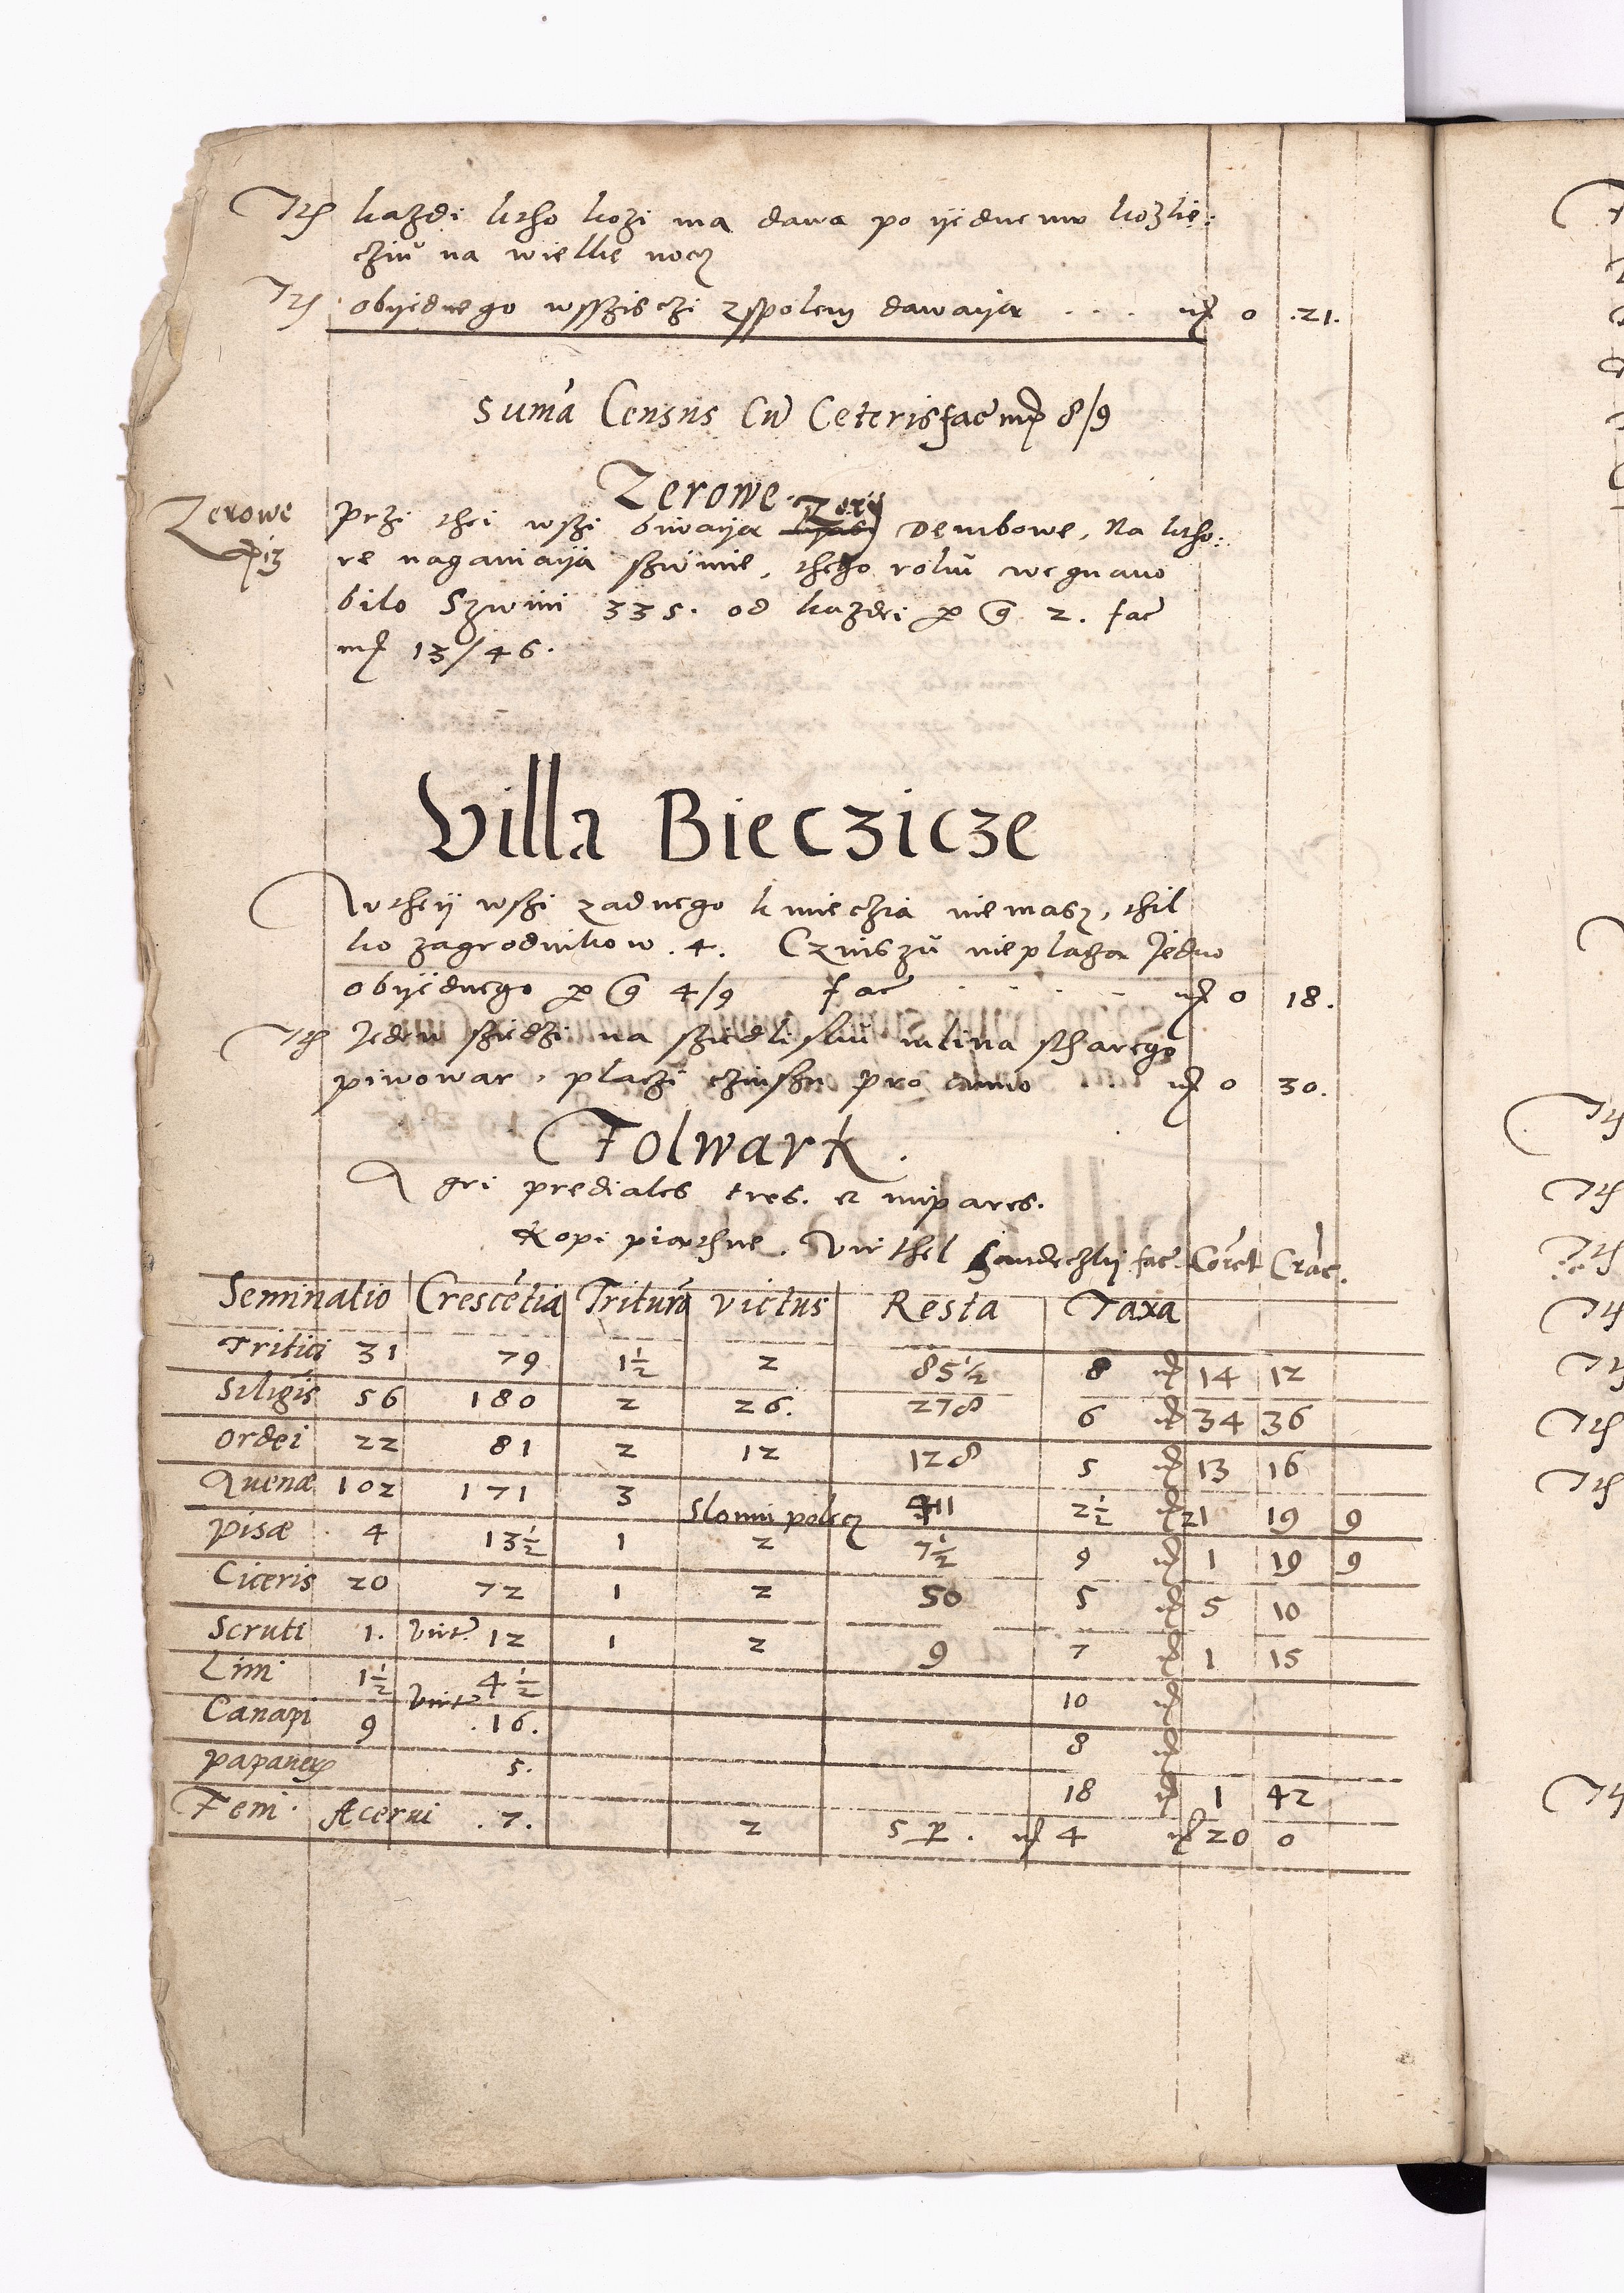 Itẽ kazdi ktho kozi ma dawa po ijednemu kozlie:
cziu na wielkie nocz
Itẽ obijednego wsszisczi zspolem dawaija . . . mͬ 0 .21.
Suma Census Cũ Ceteris fac mͬ 8/9
Zerowe
Zerowe
Przi thei wszi biwaija Zeri Dembowe, Na ktho:
re naganiaija szwinie, thego roku wegnano
bilo Szwini 335. od kazdei p g 2. fac
mͬ 13/46.
Villa Bieczicze
W theij wszi zadnego kmieczia niemasz, thil
ko zagrodnikow . 4. Czinszu nieplacza Jedno
obijednego p g 4/9 fac . . . mͬ 0 18.
Itẽ Jeden sziedzi na sziedlisku mlina starego
piwowar, placzi czinszu pro anno . . mͬ 0 30.
Folwark.
Agri prediales tres. et impares.
Kopi piarthne. Virthel Sandeczkij fac. Coret Crac.
Seminatio Crescetia Tritura Victus Resta Taxa
Tritici 31 79 1½ 2 85½ 8 mͬ 14 12
Siligis 56 180 2 26. 278 6 mͬ 34 36
Ordei 22 81 2 12 128 5 mͬ 13 16
Auenæ 102 171 3 Slomi polecz 411 2½ mͬ 21 19 9
pisæ 4 13½ 1 2 7½ 9 mͬ 1 19 9
Ciceris 20 72 1 2 50 5 mͬ 5 10
Scruti 1. Virt. 12 1 2 9 7 mͬ 1 15
Limi 1½ 4½ 10 mͬ
Canapi 9 Virt. .16. 8 mͬ
papaueris 5. 18 mͬ 1 42
Feni. Acerui .7. 2 5 p. mͬ 4 mͬ 20 0